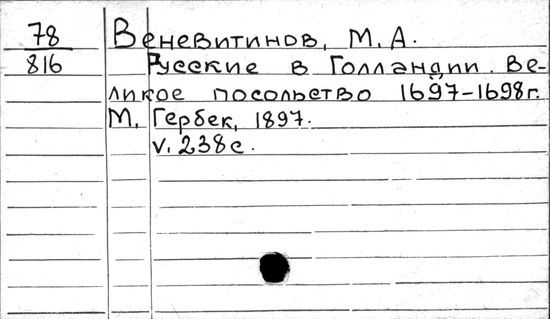 78 Веневитинов, М.А.
816 Русские в Голландии. Ве-
ликое посольство 1697-1698г.
М. Гербек, 1897.
v. 238с.